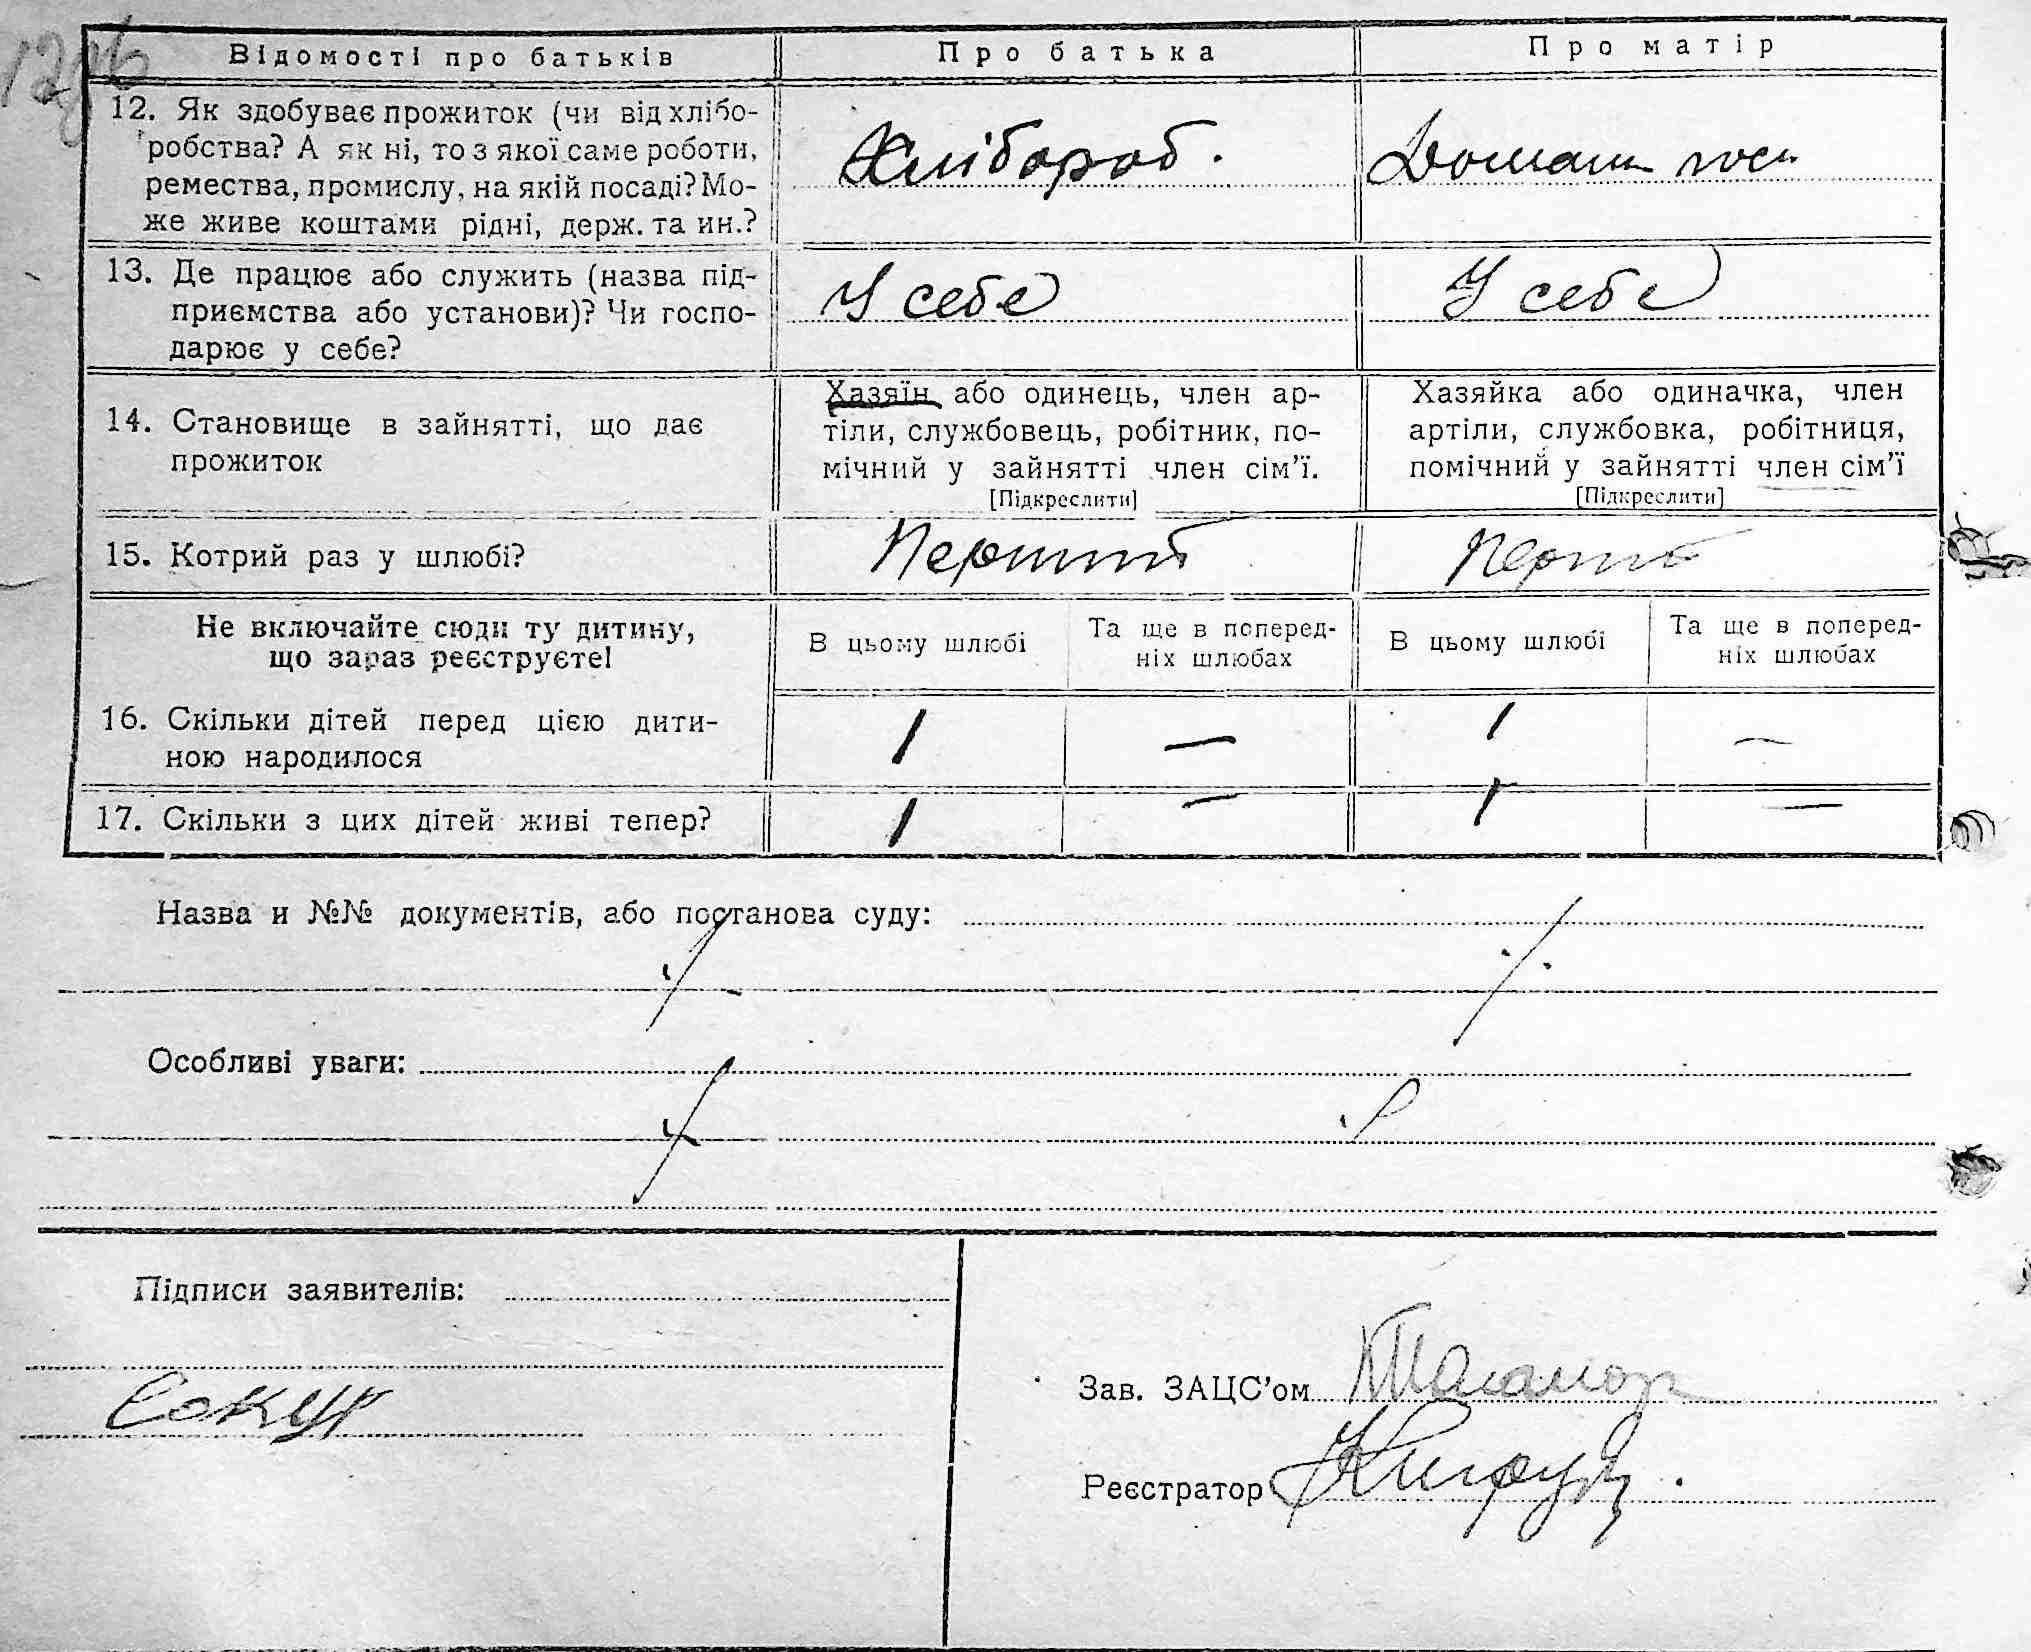 Відомості про батьків
Про батька
Про матір
12. Як здобуває прожиток (чи від хлібо-
робства? А як ні, то з якої саме роботи,
ремества, промислу, на якій посаді? Мо-
же живе коштами рідні, держ. та ин.?
Хлібороб.
Домаш гос
13. Де працює або служить (назва під-
приємства або установи)? Чи госпо-
дарює у себе?
У себе
У себе
14. Становище в зайнятті, що дає
прожиток
Хазяїн або одинець, член ар-
тіли, службовець, робітник, по-
мічний у зайнятті член сім'ї.
[Підкреслити]
Хазяйка або одиначка, член
артіли, службовка, робітниця,
помічний у зайнятті член сім'ї
[Підкреслити]
15. Котрий раз у шлюбі?
Перший
Не включайте сюди ту дитину,
що зараз реєструєте!
В цьому шлюбі
Та ще в поперед-
ніх шлюбах
В цьому шлюбі
Та ще в поперед-
ніх шлюбах
16. Скільки дітей перед цією дити-
ною народилося
1 — 1 —
17. Скільки з цих дітей живі тепер?
1 — 1 —
Назва и №№ документів, або постанова суду:
Особливі уваги:
Підписи заявителів:
Сокур
Зав. ЗАЦС'ом
Реєстратор